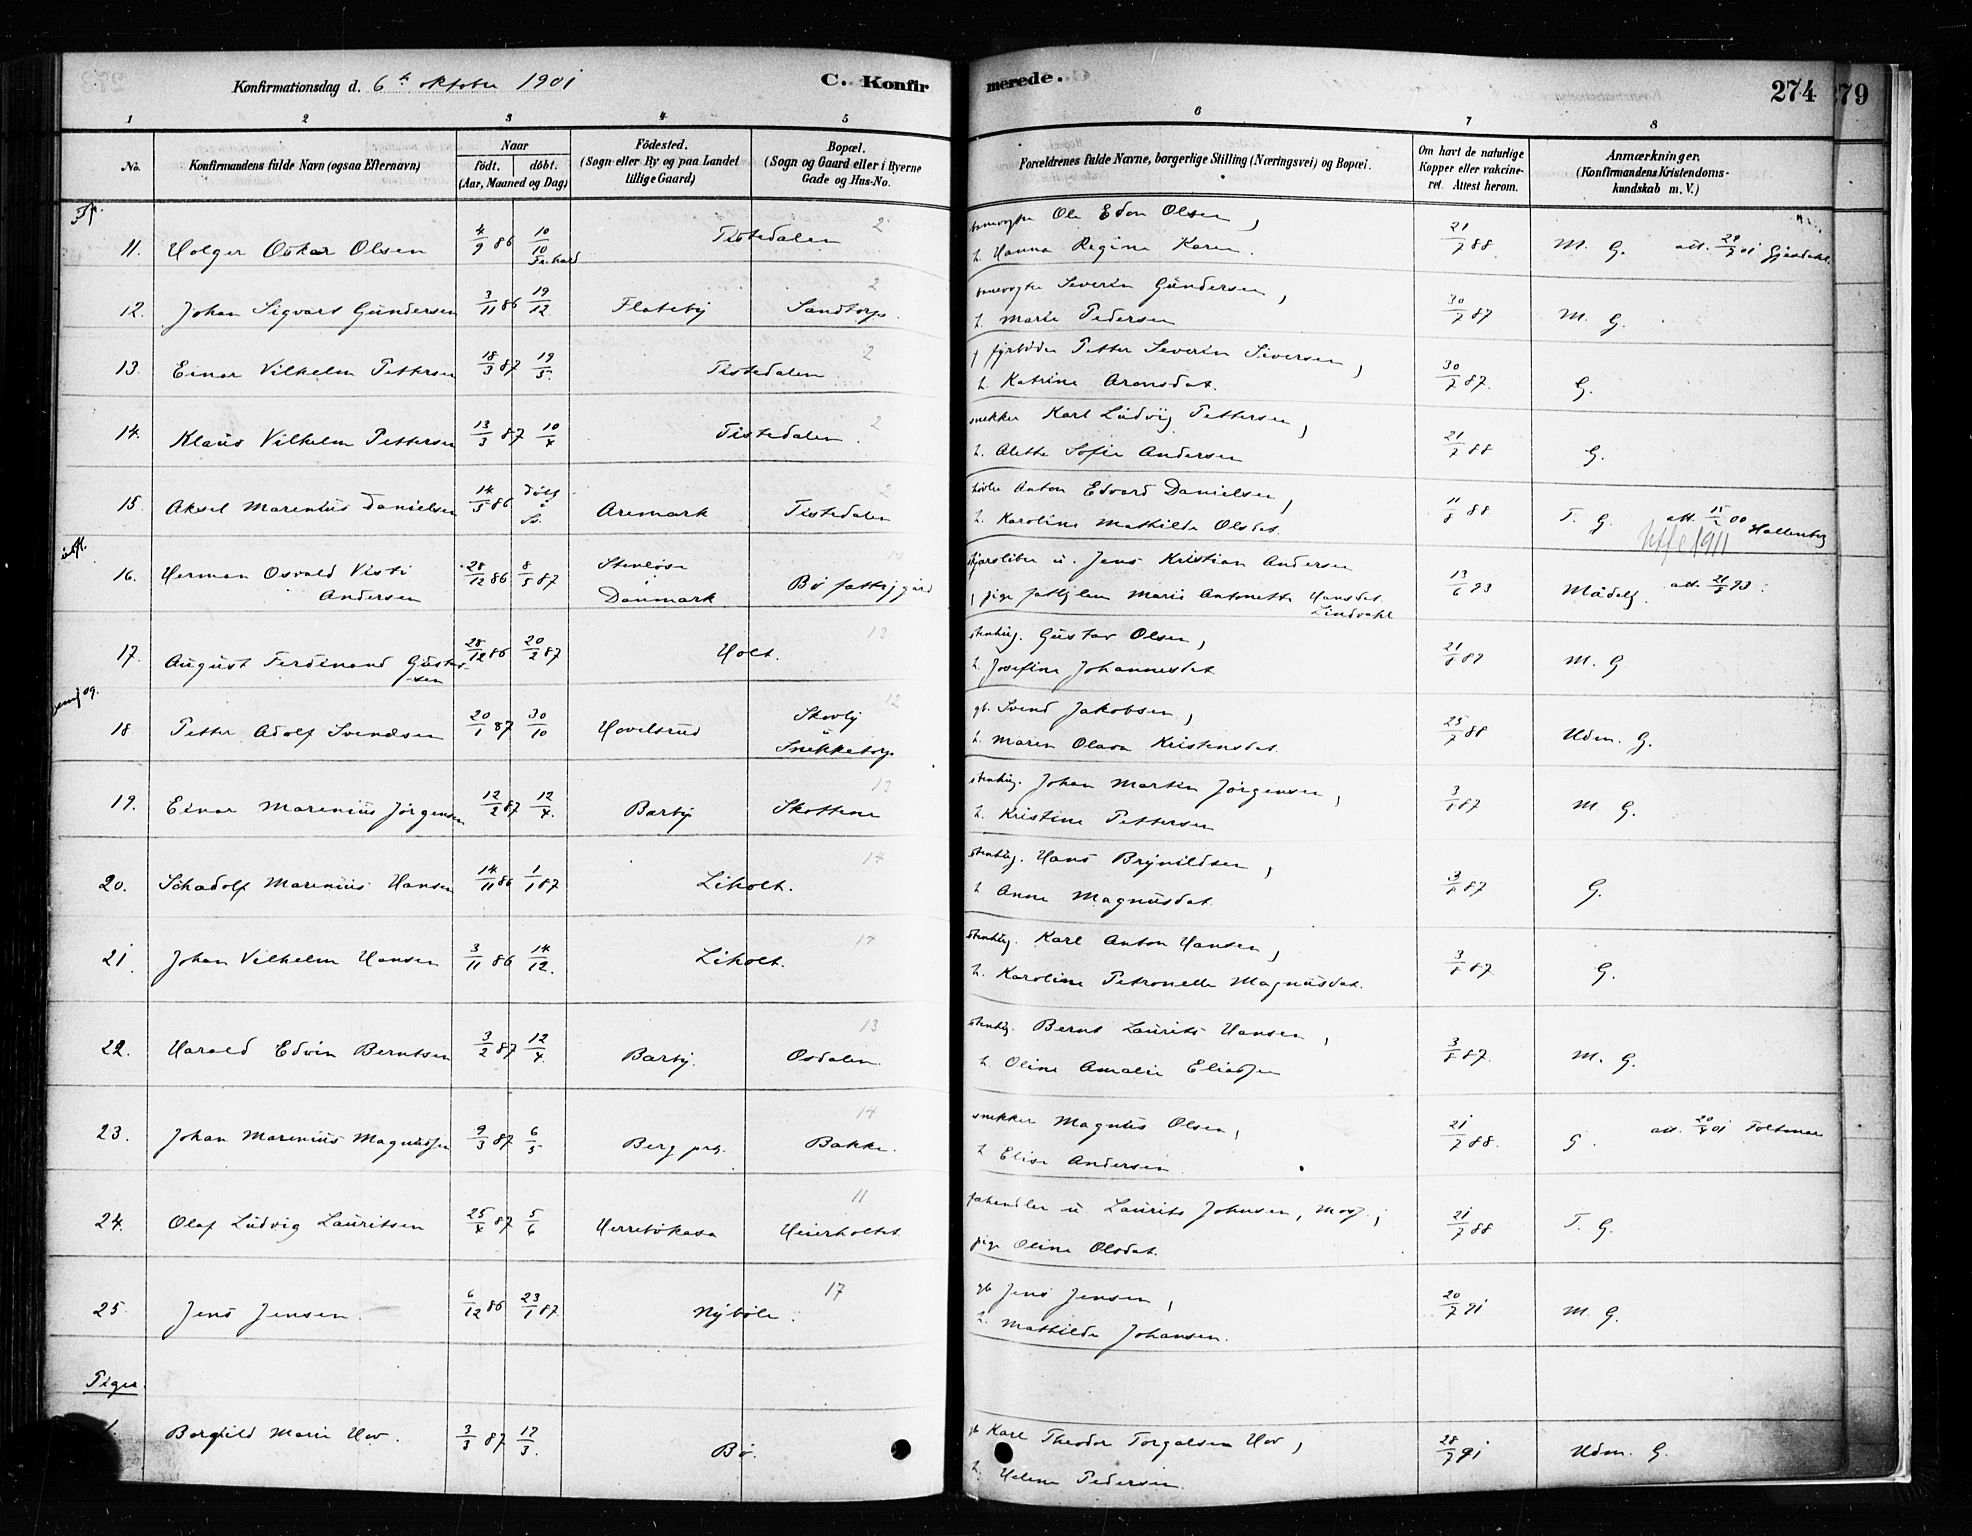 Konfirmationsdag d. 6te oktober 1901
C. Konfirmerede.
274
279
1 2 3 4 5 6 7 8
No.
Konfirmandens fulde Navn (ogsaa Efternavn)
Naar
født. døbt.
(Aar, Maaned og Dag)
Fødested.
(Sogn eller By og paa Landet tillige Gaard)
Bopæl.
(Sogn og Gaard eller i Byerne Gade og Hus-No.
Forældrenes fulde Navne, borgerlige Stilling (Næringsvei) og Bopæl.
Om havt de naturlige Kopper eller vakcineret. Attest herom.
Anmærkninger.
(Konfirmandens Kristendomskundskab m. V.)
11. Holger Oskar Olsen 4/9 86 10/10 Fr.hald Tistedalen 2 Ole Edon Olsen, h. Hanna Regine Karen. 21/7 88 M. G. att. 29/7 01 Gjøsdahl
12. Johan Sigvart Gundersen 3/11 86 19/12 Flateby Sandtorp. 2 Severin Gundersen, h. Marie Pedersen 30/7 87 M. G.
13. Einar Vilhelm Pettersen 18/3 87 19/5. Tistedalen 2 fyrbøder Petter Severin Siversen, h. Katrine Aronsdat. 30/7 87. G.
14. Klaus Vilhelm Pettersen 13/3 87 10/4 Tistedalen. 2 snekker Karl Ludvig Pettersen, h. Alette Sofie Andersen 21/7 88 G.
15. Aksel Marenius Danielsen 14/5 86 Aremark Tistedalen 2 Anton Edvard Danielsen, h. Karoline Mathilde Olsdat. 11/8 88 T. G. att. 15/2 00 Hallenby 1911
16. Herman Osvald Visti Andersen 28/12 86 8/5 87 Stenløse Danmark Bø fattiggård Jens Kristian Andersen pige Marie Antonette Hansdat. Lindvahl 13/6 93 Mådelg att. 21/8 93.
17. August Ferdinand Gustavsen 28/12 86 20/2 87 Holt. 13 stenhug. Gustav Olsen, h. Josefine Johannesdat. 21/8 87 M. G.
18 Petter Adolf Svendsen 20/1 87 30/10 Hovelsrud Skovly Snekketorp. 12 gb. Svend Jakobsen, h. Maren Olava Kristensdat. 25/7 88 Udm. G.
19. Einar Marenius Jørgensen 12/2 87 12/4. Barby Skottene 13 stenhug. Johan Martin Jørgensen, h. Kristine Pettersen 3/8 87 M. G.
20. Schadolf Marenius Hansen 14/11 86 1/1 87 Liholt. 14 stenhug. Hans Brynildsen, h Anne Magnusdat. 3/8 87 G.
21. Johan Vilhelm Hansen 3/11 86 14/12. Liholt. 14 stenhug. Karl Anton Hansen, h. Karoline Petronelle Magnusdat. 3/8 87. G.
22. Harald Edvin Berntsen 3/2 87 12/4. Barby. Osdalen 13 stenhug. Bernt Laurits Hansen, h Oline Amalie Eliassen 3/8 87. M. G.
23. Johan Marenius Magnussen 9/3 87 6/5 Berg prg. Bakke. 14 snekker Magnus Olsen, h Elise Andersen. 21/7 88. G. att. 20/4 01 Toltmar
24. Olaf Ludvig Lauritsen 25/4 87 5/6 Herrebøkasa Heierholtet 11 fehandler u. Laurits Johnsen, Moss., pige Oline Olsdat. 21/7 88 T. G.
25. Jens Jensen. 6/12 86 23/1 87. Nybøle. 17 gb Jens Jensen, h. Mathilde Johansen. 20/7 91 M. G.
Piger.
1. Borghild Marie Hov. 3/3 87 17/3. Bø. gb Karl Theodor Torgalsen Hov, h. Helene Pedersen. 28/7 91 Udm. G.